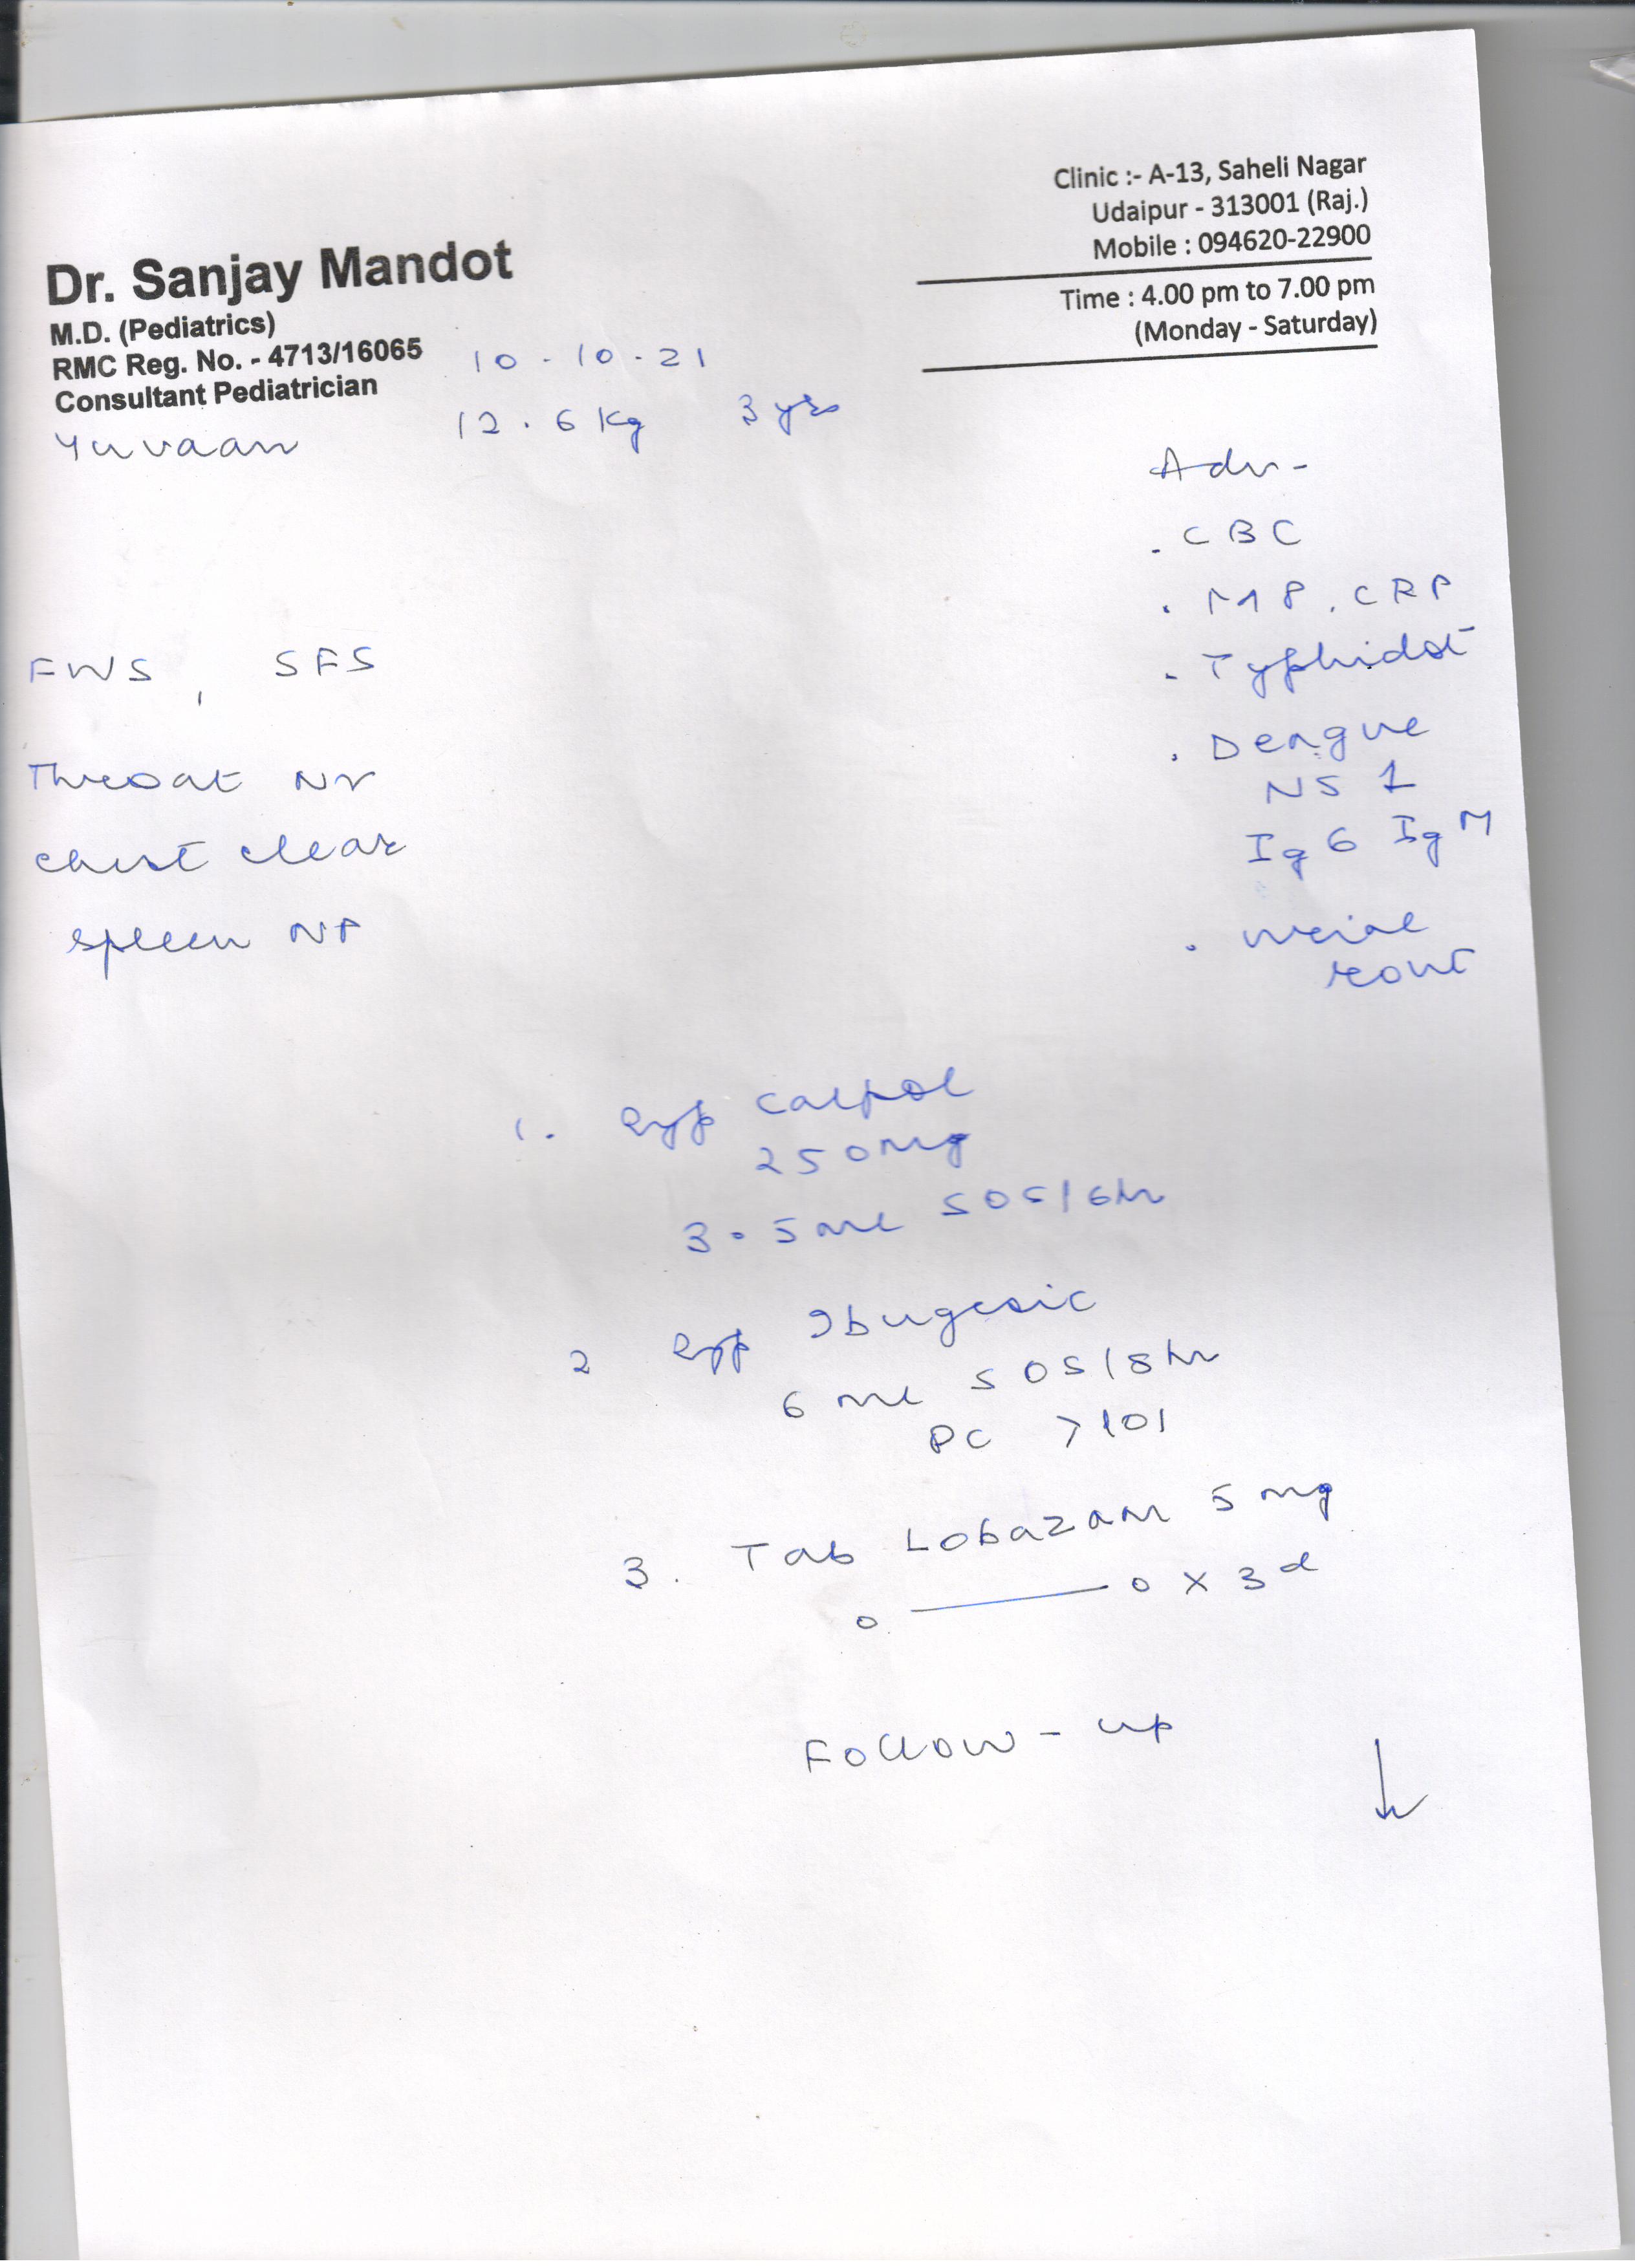 Clinic :- A-13, Saheli Nagar
Udaipur - 313001 (Raj.)
Mobile : 094620-22900
Time : 4.00 pm to 7.00 pm
(Monday - Saturday)
Dr. Sanjay Mandot
M.D. (Pediatrics)
RMC Reg. No. - 4713/16065
Consultant Pediatrician
10-10-21
Yuvaan 12.6 kg 3 yrs
Adv-
. CBC
. MP, CRP
. Typhidot
. Dengue
NS 1
IgG IgM
. Urine
FWS, SFS
Throat
chest clear
spleen NP
1. Syp Calpol
250mg
3.5 ml SOS/6hr
2 Syp Ibugesic
6 ml SOS/8hr
PC >101
3. Tab Lobazam 5 mg
0 — 0 x 3d
Follow-up